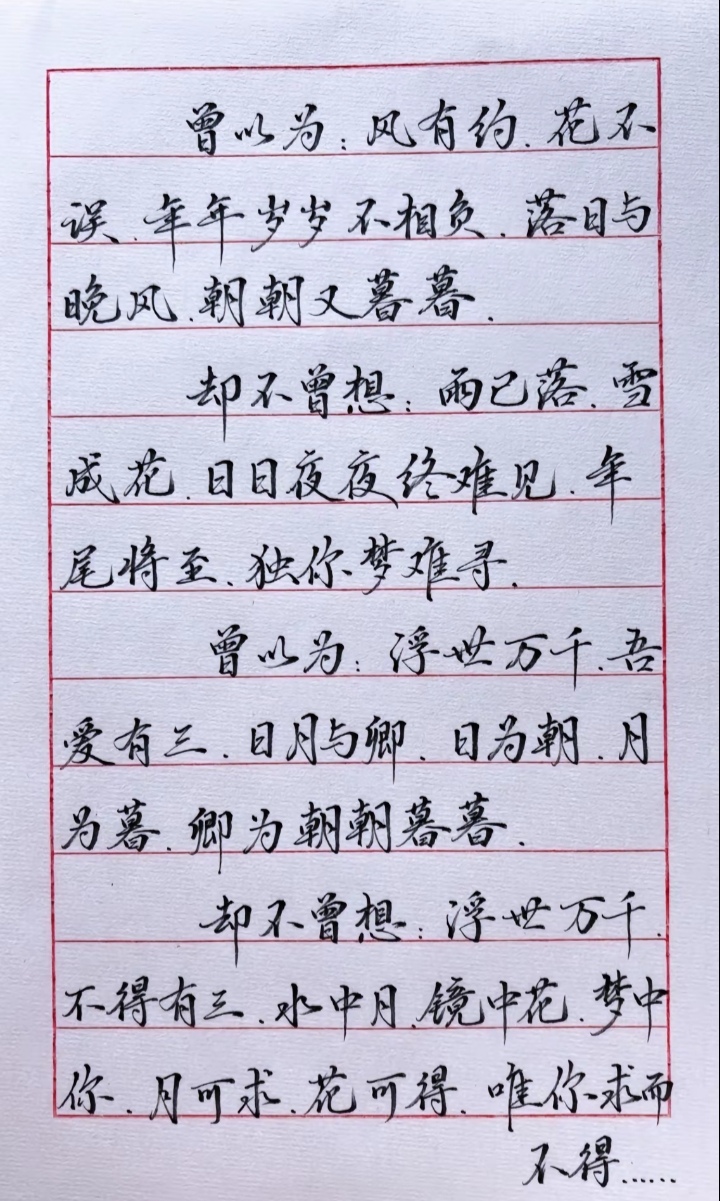 曾以为:风有约.花不
误.年年岁岁不相负.落日与
晚风.朝朝又暮暮.
却不曾想:雨已落.雪
成花.日日夜夜终难见.年
尾将至.独你梦难寻.
曾以为:浮世万千.吾
爱有三.日月与卿.日为朝.月
为暮.卿为朝朝暮暮.
却不曾想:浮世万千.
不得有三.水中月.镜中花.梦中
你.月可求.花可得.唯你求而
不得......